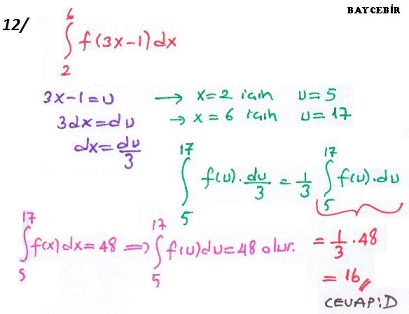 BAYCEBİR
12/
∫₂⁶ f(3x-1)dx
3x-1=u → x=2 için u=5
3dx=du → x=6 için u=17
dx=du/3
∫₅¹⁷ f(u).du/3 = 1/3 ∫₅¹⁷ f(u).du
∫₅¹⁷ f(x)dx=48 ⟹ ∫₅¹⁷ f(u)du=48 olur.
=1/3.48
=16//
CEVAP:D